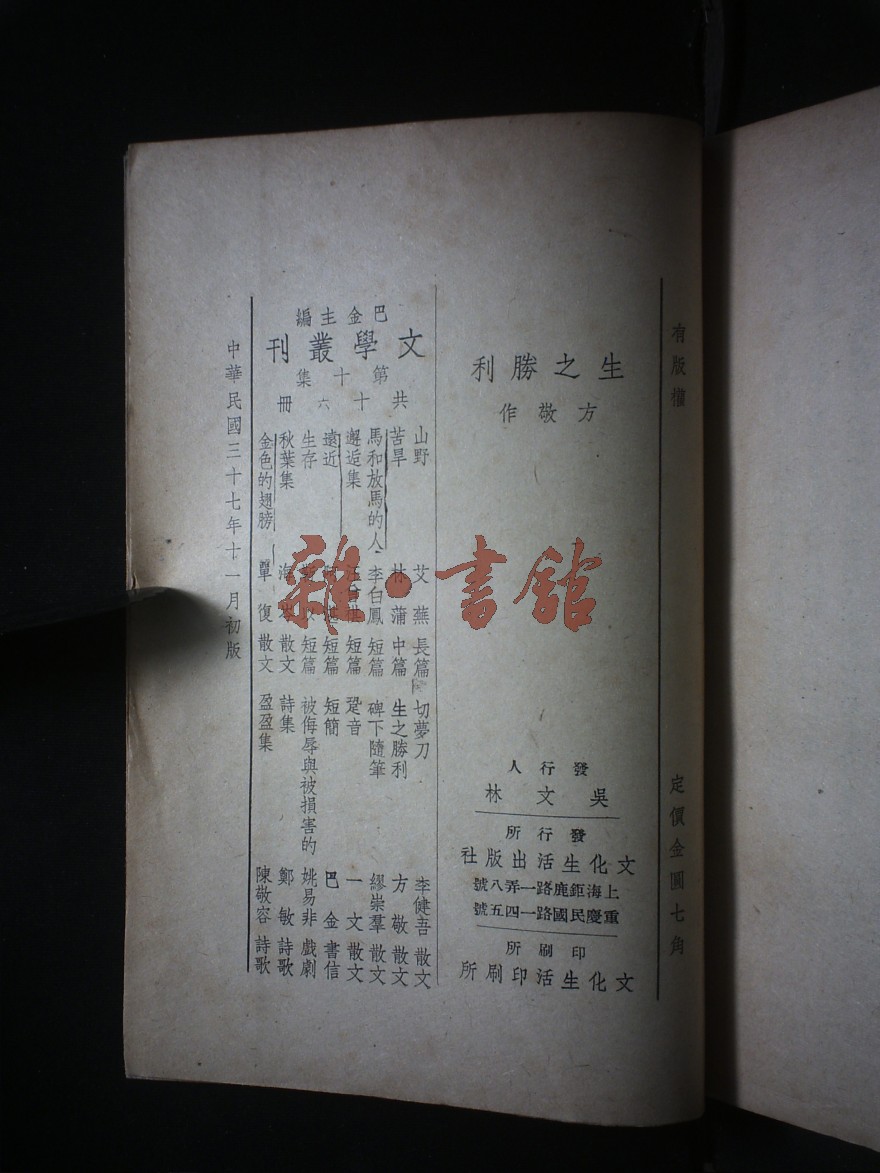 有版權 定價金圓七角
生之勝利
方敬作
發行人
吳文林
發行所
文化生活出版社
上海鉅鹿路一弄八號
重慶民國路一四五號
印刷所
文化生活印刷所
巴金主編
文學叢刊
第十集
共十六冊
山野 艾蕪 長篇
苦旱 林蒲 中篇
馬和放馬的人 李白鳳 短篇
邂逅集 短篇
遠近 短篇
生存 短篇
秋葉集 海 散文
金色的翅膀 單復 散文
切夢刀 李健吾 散文
生之勝利 方敬 散文
碑下隨筆 繆崇羣 散文
跫音 一文 散文
短簡 巴金 書信
被侮辱與被損害的 姚易非 戲劇
詩集 鄭敏 詩歌
盈盈集 陳敬容 詩歌
中華民國三十七年十一月初版
雜·書館